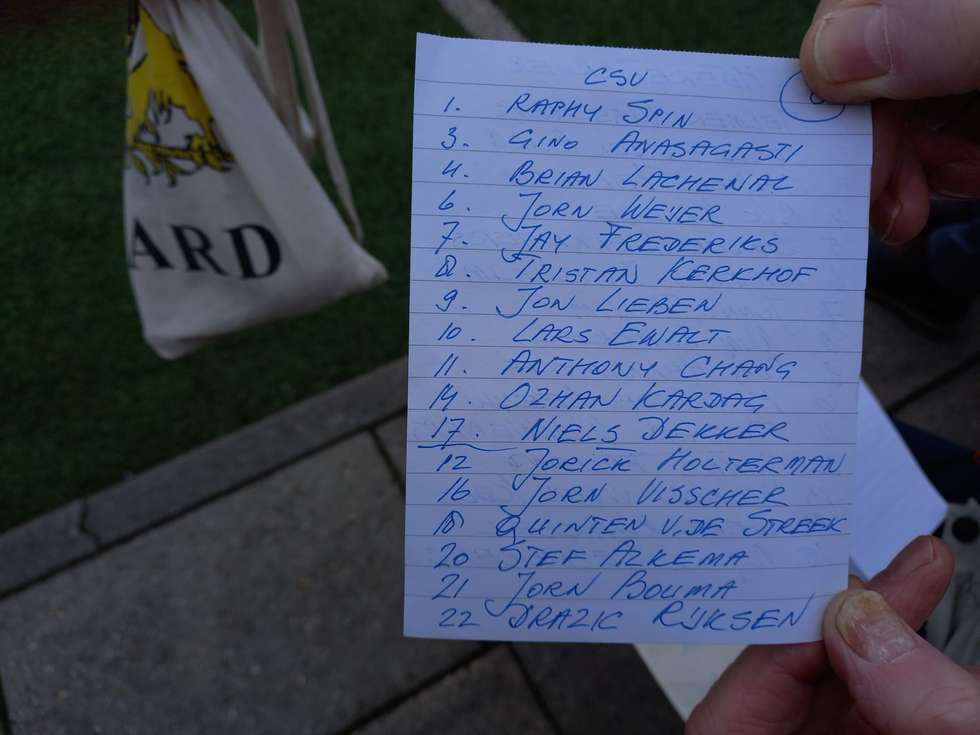 ARD
CSV
1. RAPHY SPIN
3. GINO ANASAGASTI
4. BRIAN LACHENAL
6. JORN WEIJER
7. JAY FREDERIKS
8. TRISTAN KERKHOF
9. JON LIEBEN
10. LARS EWALT
11. ANTHONY CHANG
14. OZHAN KARDAG
17. NIELS DEKKER
12 JORICK HOLTERMAN
16 JORN VISSCHER
18 QUINTEN V.DE STREEK
20 STEF ALKEMA
21 JORN BOUMA
22 DRAZIC RIJKSEN